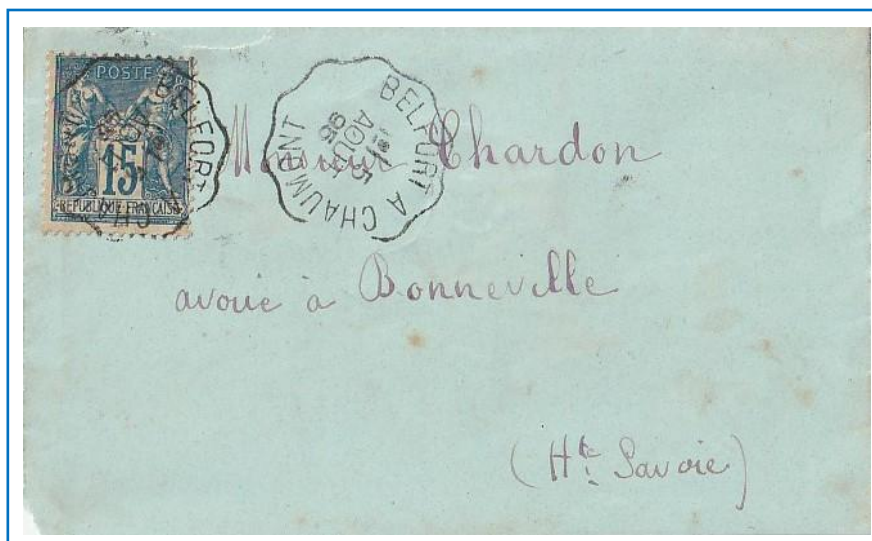 POSTES
15
REPUBLIQUE FRANÇAISE
BELFORT
CH
BELFORT A CHAUMONT
1E
15
AOUT
95
Monsieur Chardon
avoué à Bonneville
(Hte Savoie)